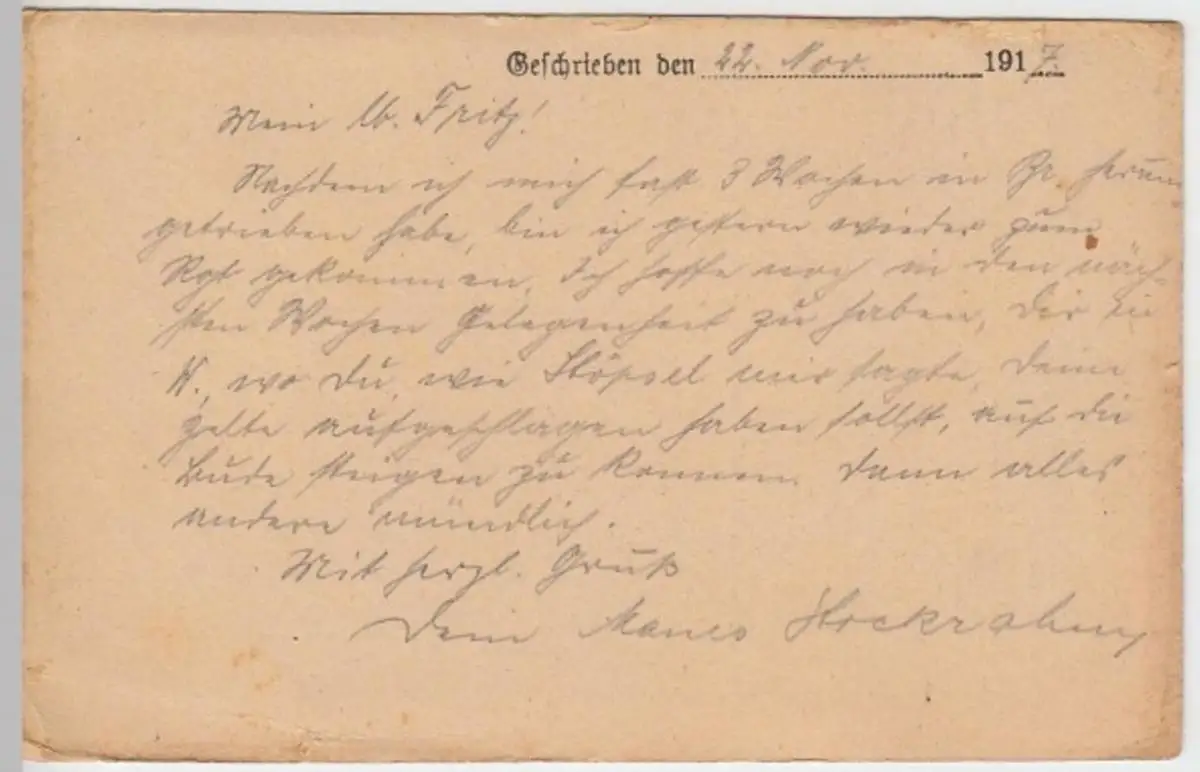 Geschrieben den 22. Nov. 1917.
Mein lb. Fritz!
Nachdem ich mich fast 3 Wochen in Br. herum
getrieben habe, bin ich gestern wieder zum
Rgt gekommen. Ich hoffe noch in den näch-
sten Wochen Gelegenheit zu haben, Dir in
N., wo Du, wie Stöpsel mir sagte, Deine
Zelte aufgeschlagen haben sollst, auf die
Bude steigen zu können. Dann alles
andere mündlich.
Mit herzl. Gruß
Dein